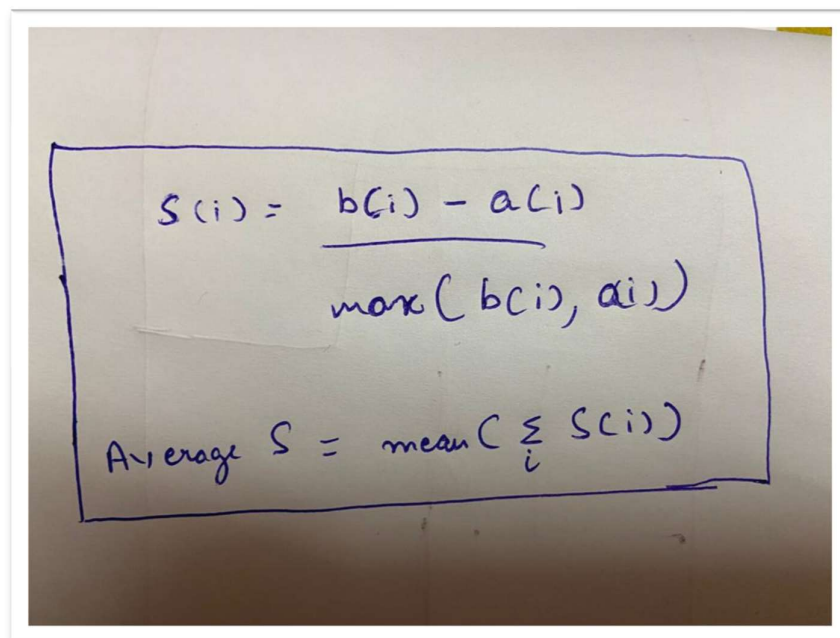 S(i) = b(i) - a(i)
max( b(i), a(i))
Average S = mean( Σ S(i))
i